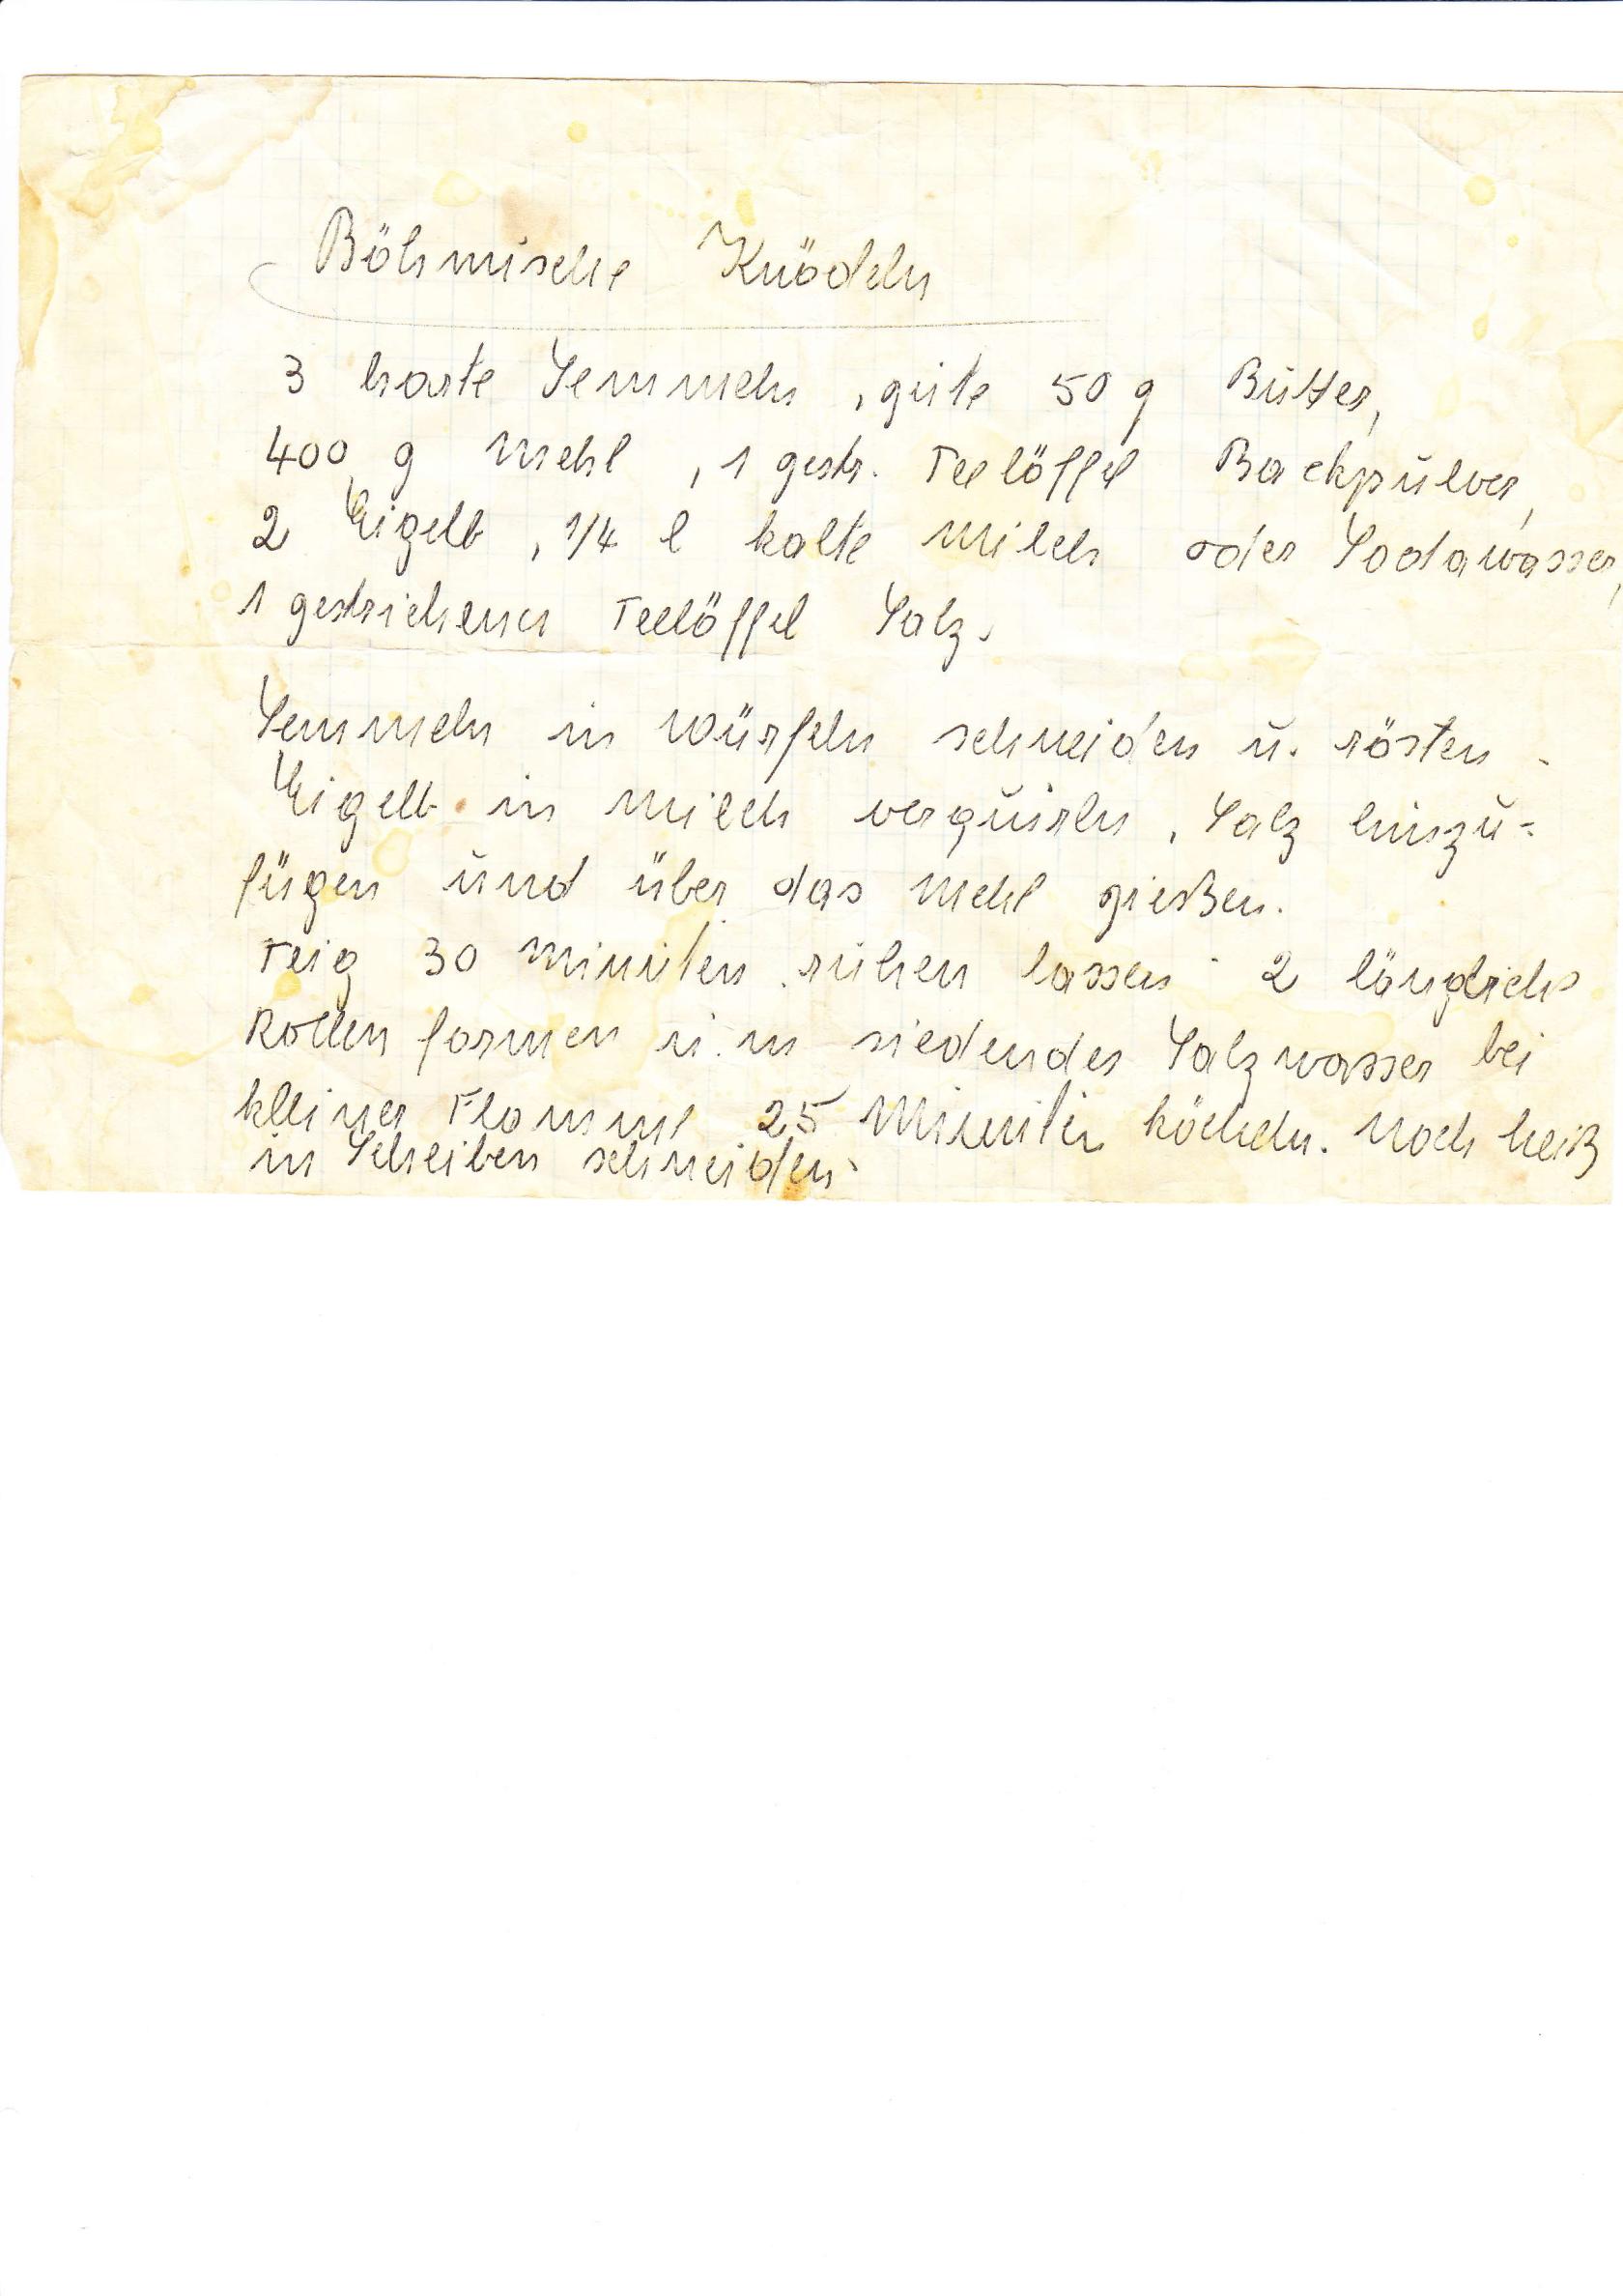 Böhmische Knödeln
3 harte Semmeln, gute 50 g Butter,
400 g Mehl, 1 gestr. Teelöffel Backpulver,
2 Eigelb, 1/4 l kalte Milch oder Sodawasser,
1 gestrichener Teelöffel Salz.
Semmeln in Würfeln schneiden u. rösten.
Eigelb in Milch verquirln, Salz hinzu-
fügen und über das Mehl gießen.
Teig 30 Minuten ruhen lassen. 2 längliche
Rollen formen u. in siedendes Salzwasser bei
kleiner Flamme 25 Minuten köcheln. Noch heiß
in Scheiben schneiden.